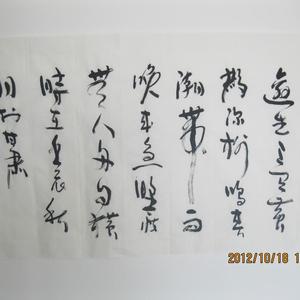 邊生上有黄
鹂深树鸣春
潮带雨
晚来急野渡
无人舟自横
時在壬辰秋
月於甘肃
2012/10/18 1